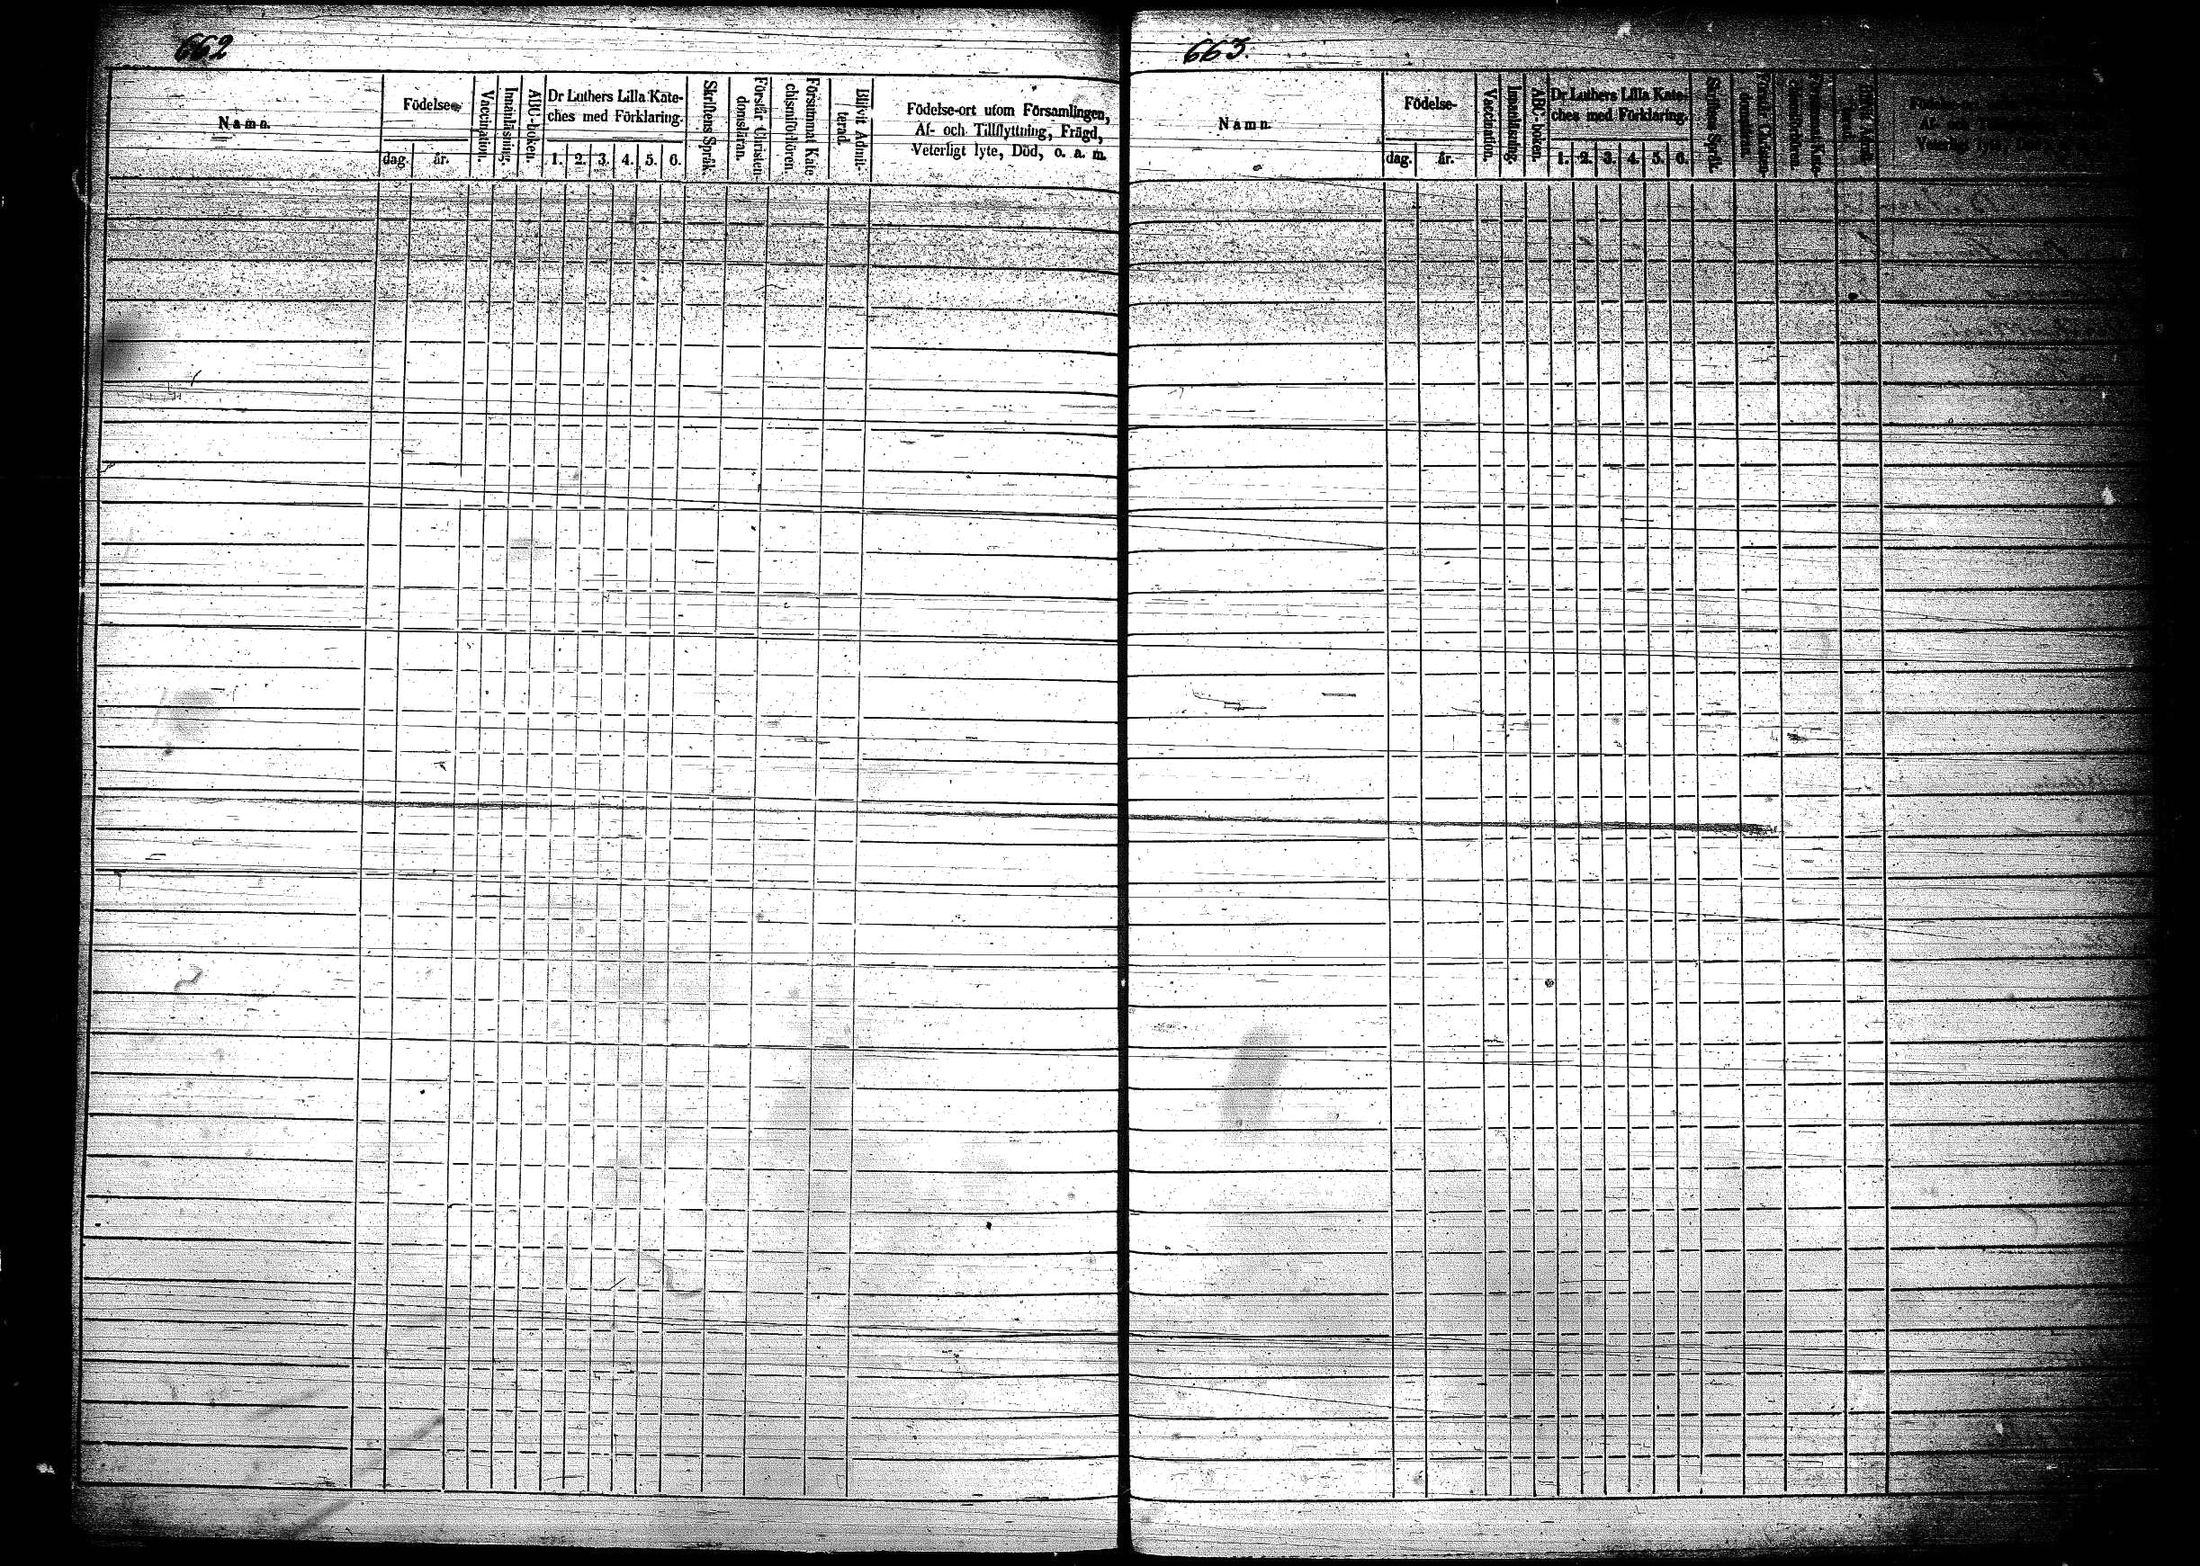 662
Namn.
Födelse-
dag. år.
Vaccination.
Innanläsning.
ABC-boken.
Dr Luthers Lilla Kate-
ches med Förklaring.
1. 2. 3. 4. 5. 6.
Skriftens Språk.
Förstår Christen-
domsläran.
Försummat Kate-
chismiförhören.
Blifvit Admit-
terad.
Födelse-ort utom Församlingen,
Af- och Tillflyttning, Frägd,
Veterligt lyte, Död, o. a. m.
663.
Namn.
Födelse-
dag. år.
Vaccination.
Innanläsning.
ABC-boken.
Dr Luthers Lilla Kate-
ches med Förklaring.
1. 2. 3. 4. 5. 6.
Skriftens Språk.
Af- och
Veterligt lyte,